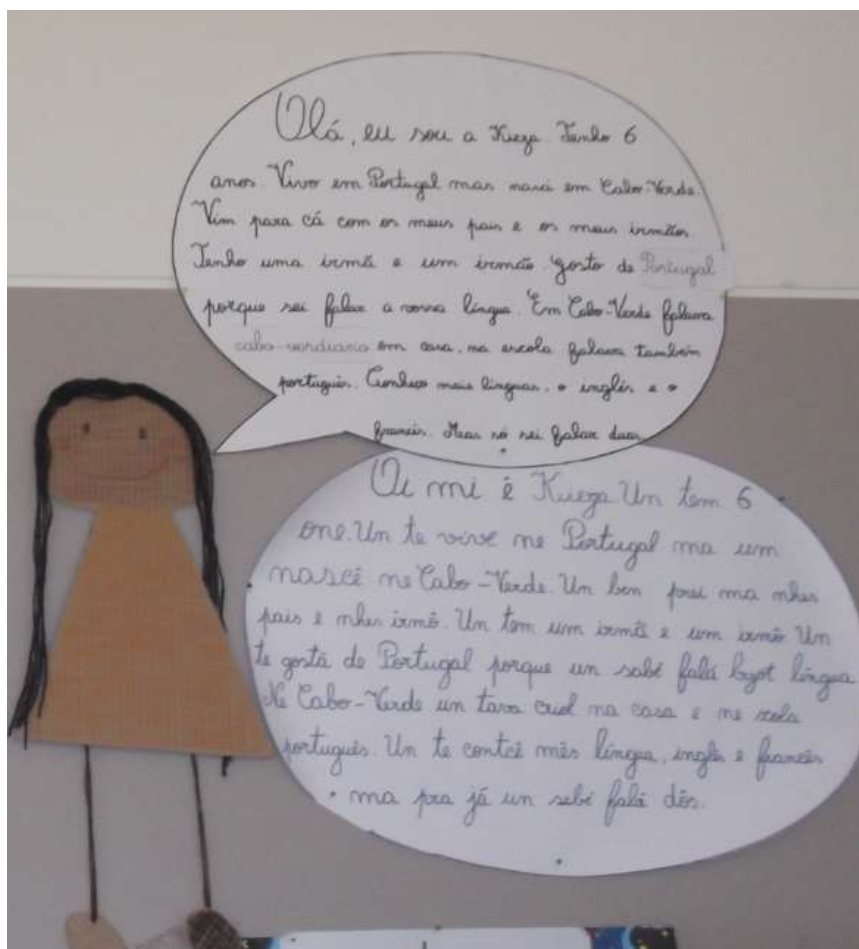 Olá, eu sou a Kieza. Tenho 6
anos. Vivo em Portugal mas nasci em Cabo-Verde.
Vim para cá com os meus pais e os meus irmãos
Tenho uma irmã e um irmão. Gosto de Portugal
porque sei falar a vossa língua. Em Cabo-Verde falava
cabo-verdiano em casa, na escola falava também
português. Conheço mais línguas, o inglês e o
francês. Mas só sei falar duas.
Oi mi é Kieza Un tem 6
one. Un te vive ne Portugal ma um
nascê ne Cabo-Verde. Un ben prei ma nhes
pais e nhes irmõ. Un tem um irmã e um irmõ Un
te gostá de Portugal porque un sabê falá língua
Ne Cabo-Verde un tava criol na casa e ne scola
português. Un te contcê mês língua, inglês e francês
ma pra já un sebê falá dôs.